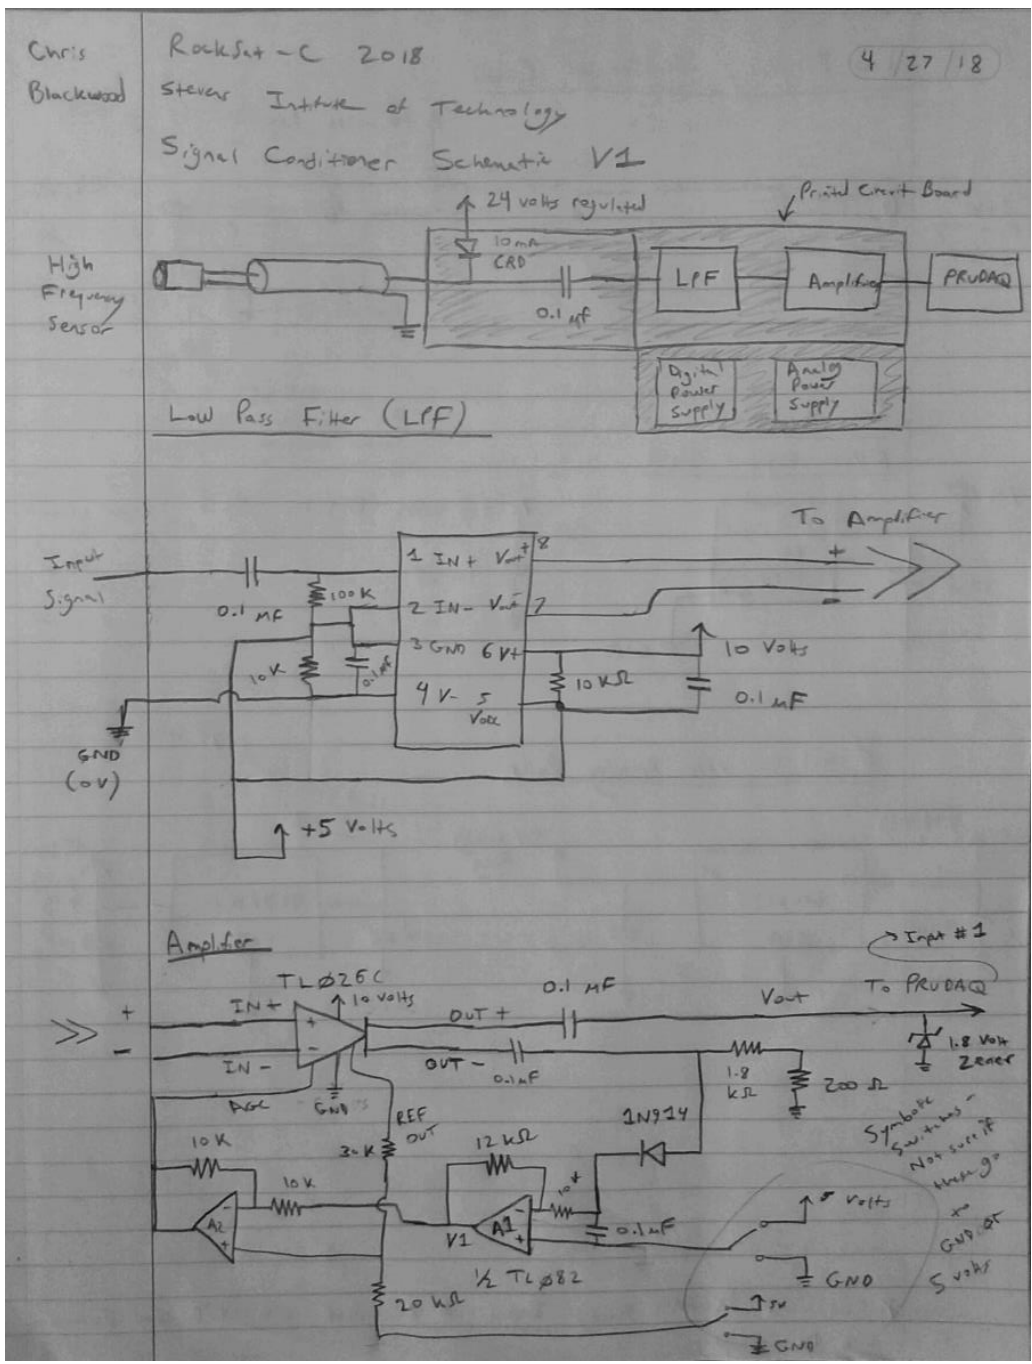 Chris
Blackwood
RockSat-C 2018
4/27/18
Stevens Intitute of Technology
Signal Conditioner Schematic V1
24 volts regulated
Printed Circuit Board
High
Frequency
Sensor
10mA
CRD
0.1 µF
LPF
Amplifier
PRUDAQ
Digital
Power
Supply
Analog
Power
Supply
Low Pass Filter (LPF)
To Amplifier
Input
Signal
0.1 MF
100K
10K
0.1µF
1 IN+ Vout+ 8
2 IN- Vout- 7
3 GND 6 V+
4 V- 5
+
-
10 Volts
10 KΩ
0.1 µF
GND
(0V)
+5 Volts
Amplifier
Input #1
TLØ26C
10 volts
0.1 MF
Vout
To PRUDAQ
+
-
IN+
IN-
+
-
OUT+
OUT-
0.1µF
1.8 Volt
Zener
1.8
kΩ
200 Ω
AGC
GND
REF
OUT
1N914
10K
10K
12 kΩ
10K
A2
-
+
V1
A1
-
+
0.1µF
½ TLØ82
20 kΩ
Symbolic
Switches -
Not sure if
these go
to
GND or
5 volts
5 volts
GND
5V
GND